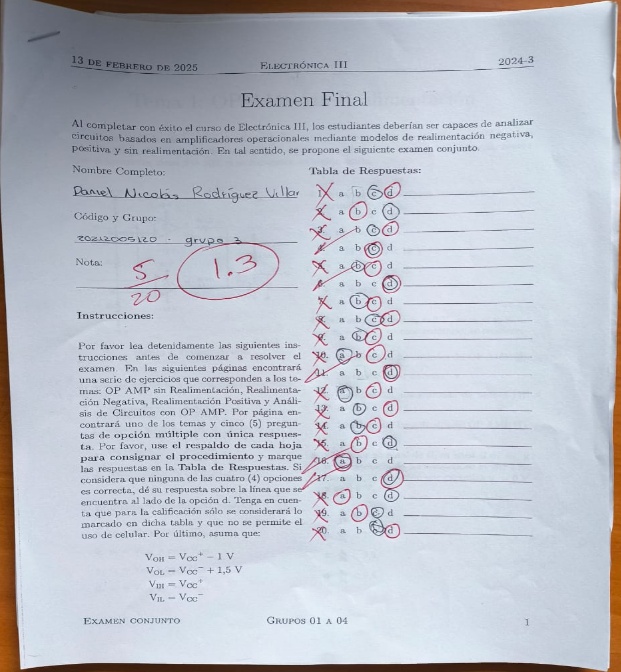 13 DE FEBRERO DE 2025 ELECTRÓNICA III 2024-3
Examen Final
Al completar con éxito el curso de Electrónica III, los estudiantes deberían ser capaces de analizar
circuitos basados en amplificadores operacionales mediante modelos de realimentación negativa,
positiva y sin realimentación. En tal sentido, se propone el siguiente examen conjunto.
Nombre Completo:
Daniel Nicolás Rodríguez Villar
Código y Grupo:
20212005120 - grupo 3
Nota:
5
20
1.3
Instrucciones:
Por favor lea detenidamente las siguientes ins-
trucciones antes de comenzar a resolver el
examen. En las siguientes páginas encontrará
una serie de ejercicios que corresponden a los te-
mas: OP AMP sin Realimentación, Realimenta-
ción Negativa, Realimentación Positiva y Análi-
sis de Circuitos con OP AMP. Por página en-
contrará uno de los temas y cinco (5) pregun-
tas de opción múltiple con única respues-
ta. Por favor, use el respaldo de cada hoja
para consignar el procedimiento y marque
las respuestas en la Tabla de Respuestas. Si
considera que ninguna de las cuatro (4) opciones
es correcta, dé su respuesta sobre la línea que se
encuentra al lado de la opción d. Tenga en cuen-
ta que para la calificación sólo se considerará lo
marcado en dicha tabla y que no se permite el
uso de celular. Por último, asuma que:
VOH = VCC+ − 1 V
VOL = VCC− + 1,5 V
VIH = VCC+
VIL = VCC−
Tabla de Respuestas:
1. a b c d
2. a b c d
3. a b c d
4. a b c d
5. a b c d
6. a b c d
7. a b c d
8. a b c d
9. a b c d
10. a b c d
11. a b c d
12. a b c d
13. a b c d
14. a b c d
15. a b c d
16. a b c d
17. a b c d
18. a b c d
19. a b c d
20. a b c d
EXAMEN CONJUNTO GRUPOS 01 A 04 1